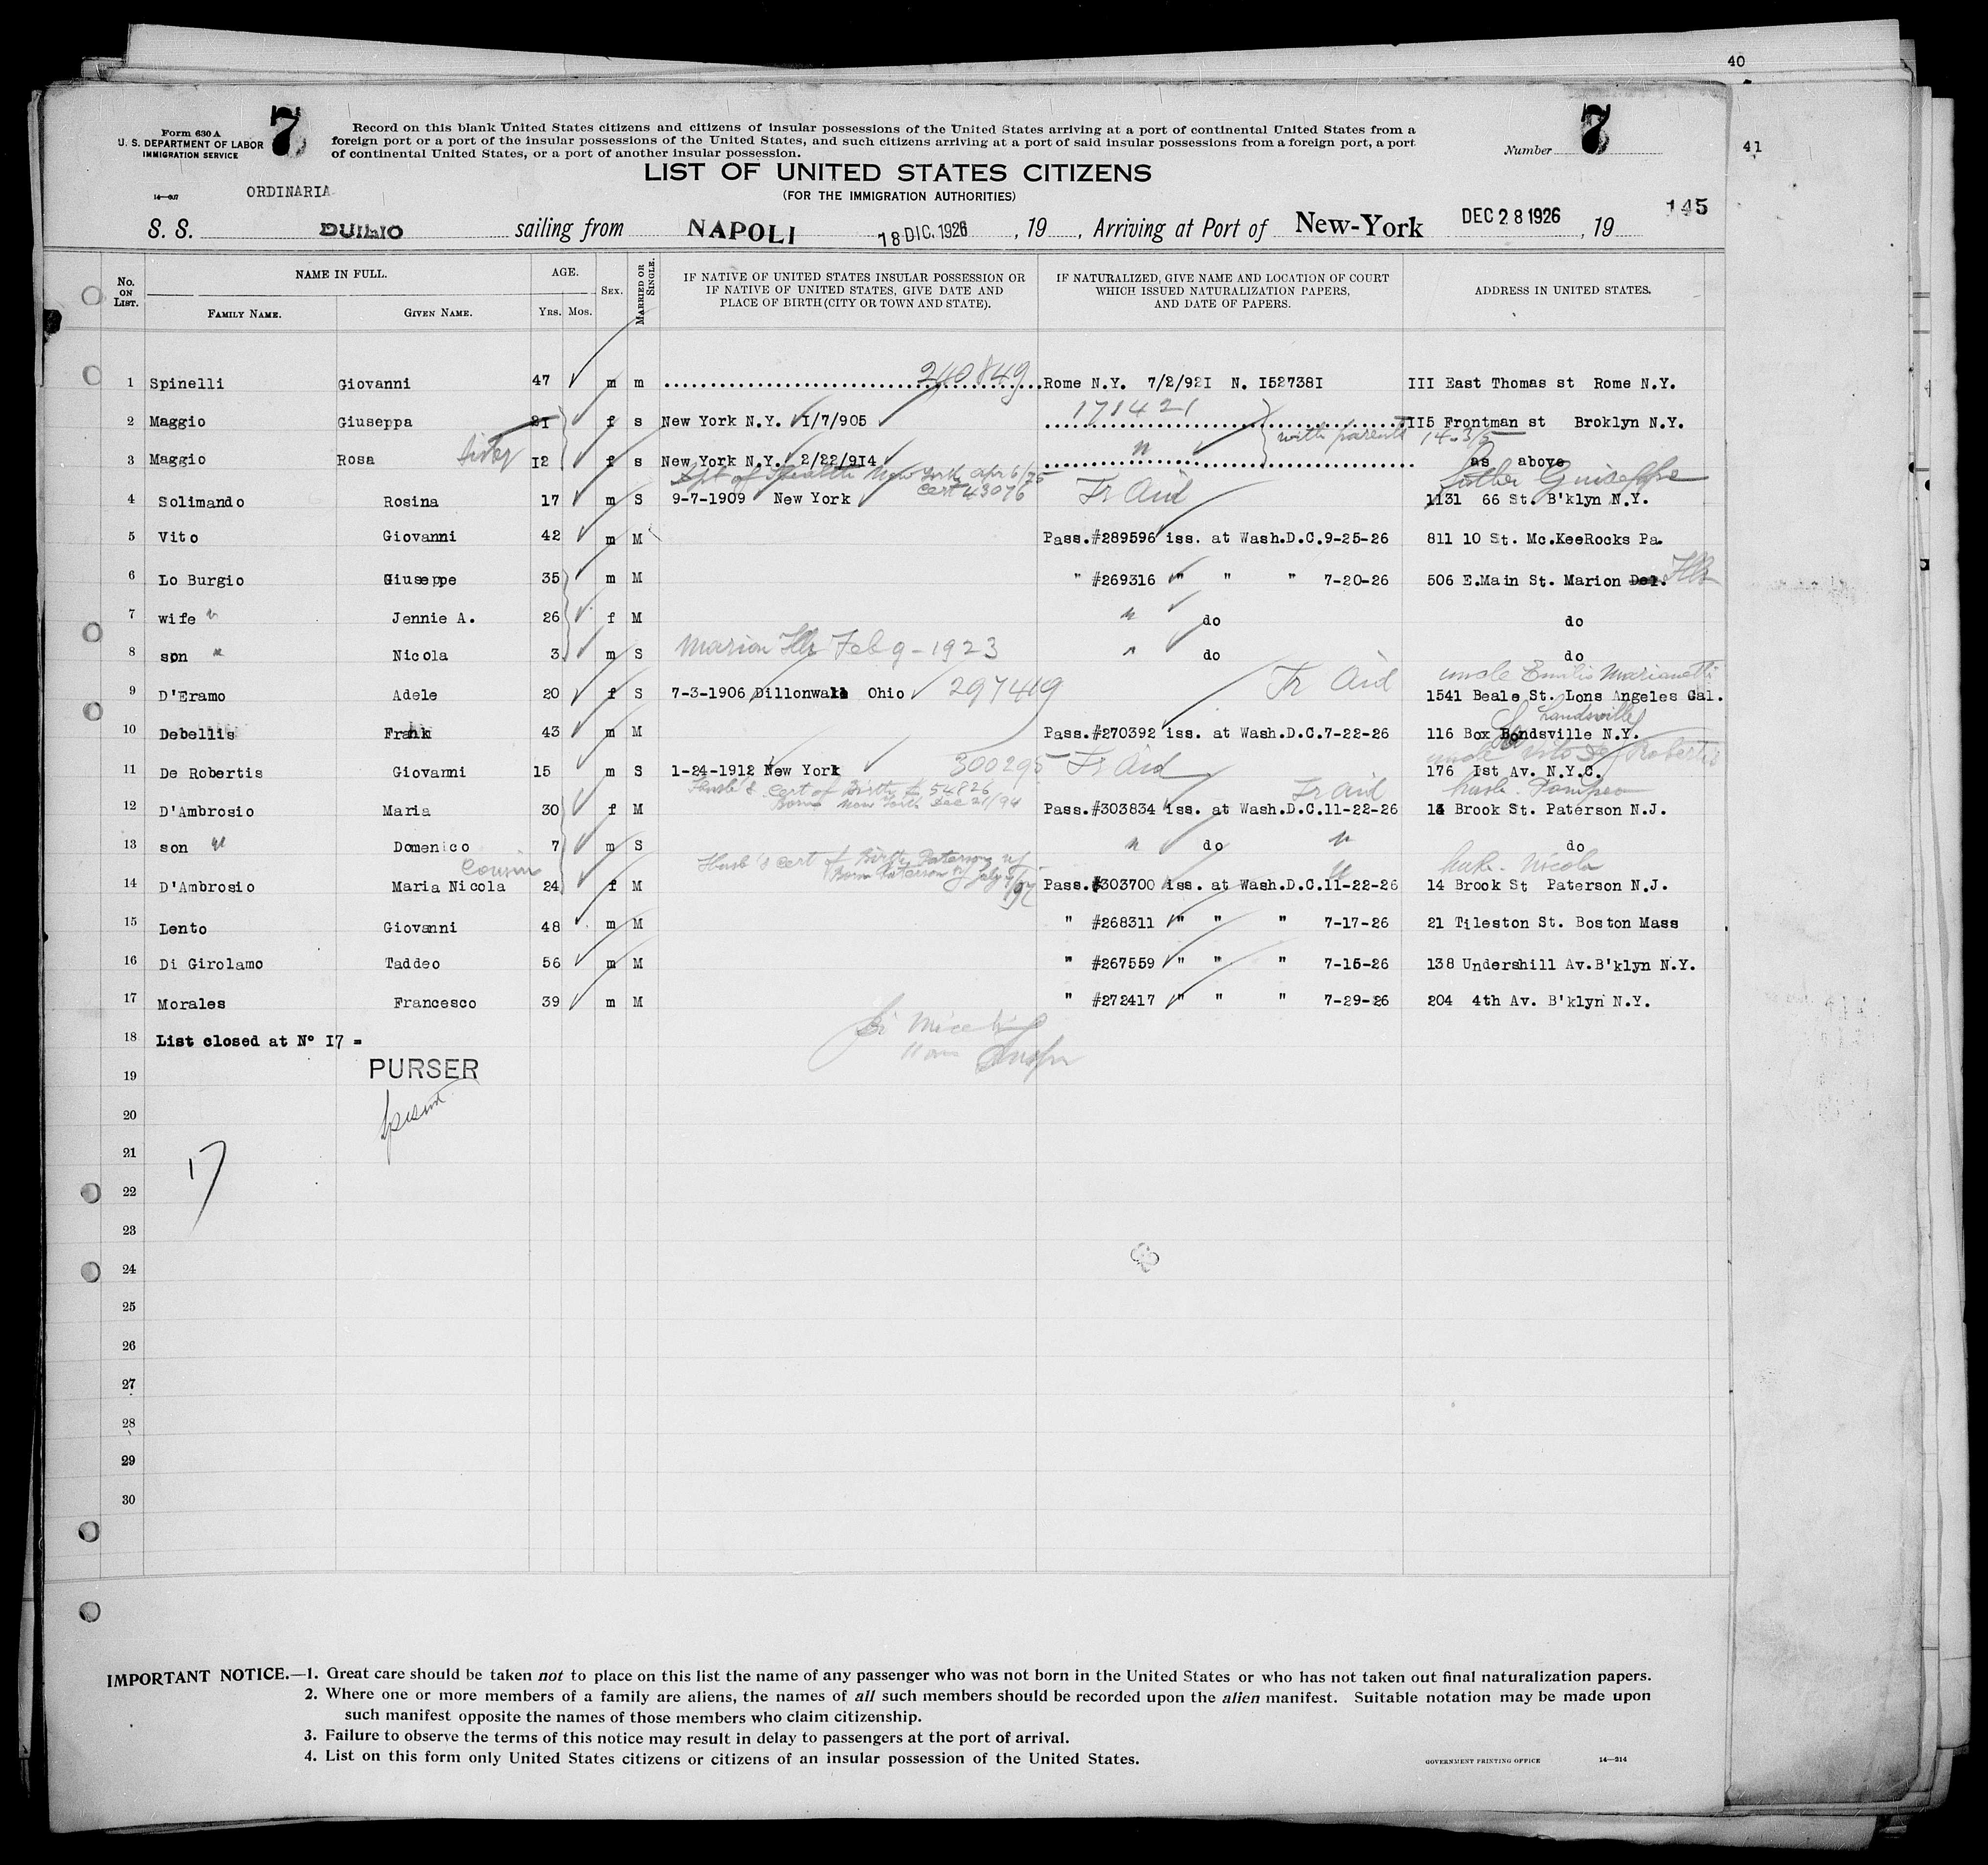 40
41
Form 630 A
U. S. DEPARTMENT OF LABOR
IMMIGRATION SERVICE
7
Record on this blank United States citizens and citizens of insular possessions of the United States arriving at a port of continental United States from a
foreign port or a port of the insular possessions of the United States, and such citizens arriving at a port of said insular possessions from a foreign port, a port
of continental United States, or a port of another insular possession.
Number 7
LIST OF UNITED STATES CITIZENS
(FOR THE IMMIGRATION AUTHORITIES)
ORDINARIA
145
S. S. DUILIO sailing from NAPOLI 18 DIC. 1926, 19 , Arriving at Port of New-York DEC 28 1926, 19
No. ON LIST. NAME IN FULL. FAMILY NAME. GIVEN NAME. AGE. YRS. MOS. SEX. MARRIED OR SINGLE.
IF NATIVE OF UNITED STATES INSULAR POSSESSION OR
IF NATIVE OF UNITED STATES, GIVE DATE AND
PLACE OF BIRTH (CITY OR TOWN AND STATE).
IF NATURALIZED, GIVE NAME AND LOCATION OF COURT
WHICH ISSUED NATURALIZATION PAPERS,
AND DATE OF PAPERS.
ADDRESS IN UNITED STATES.
240849
1 Spinelli Giovanni 47 m m Rome N.Y. 7/2/92I N. I52738I III East Thomas st Rome N.Y.
171421
2 Maggio Giuseppa 2I f s New York N.Y. I/7/905 II5 Frontman st Broklyn N.Y.
with parents 14-3/5
3 Maggio Rosa sister I2 f s New York N.Y. 2/22/9I4 " as above
Dpt of Health New York Apr 6/25
Cert 43076
father Guiseppe
4 Solimando Rosina 17 m S 9-7-1909 New York Fr Aid 1131 66 St. B'klyn N.Y.
5 Vito Giovanni 42 m M Pass.#289596 iss. at Wash.D.C.9-25-26 811 10 St. Mc.KeeRocks Pa.
6 Lo Burgio Giuseppe 35 m M " #269316 " " " 7-20-26 506 E.Main St. Marion Del. Ills
7 wife " Jennie A. 26 f M " do do
8 son " Nicola 3 m S Marion Ills Feb 9-1923 " do do
uncle Emilio Marianetti
9 D'Eramo Adele 20 f S 7-3-1906 Dillonwale Ohio 297419 Fr Aid 1541 Beale St. Lons Angeles Cal.
Landsville
10 Debellis Frank 43 m M Pass.#270392 iss. at Wash.D.C.7-22-26 116 Box Bondsville N.Y.
uncle Vito De Robertis
11 De Robertis Giovanni 15 m S 1-24-1912 New York 300295 Fr Aid 176 Ist Av. N.Y.C.
Husb's Cert of Birth # 54826
Born New York Dec 21/94
Fr Aid husb. Pompeo
12 D'Ambrosio Maria 30 f M Pass.#303834 iss. at Wash.D.C.11-22-26 14 Brook St. Paterson N.J.
13 son " Domenico 7 m S " do " do
cousin
Husb's cert of Birth Paterson NJ
Born Paterson NJ July 7/97
" husb. Nicola
14 D'Ambrosio Maria Nicola 24 f M Pass.#303700 iss. at Wash.D.C.11-22-26 14 Brook St Paterson N.J.
15 Lento Giovanni 48 m M " #268311 " " " 7-17-26 21 Tileston St. Boston Mass
16 Di Girolamo Taddeo 56 m M " #267559 " " " 7-15-26 138 Undershill Av.B'klyn N.Y.
17 Morales Francesco 39 m M " #272417 " " " 7-29-26 204 4th Av. B'klyn N.Y.
18 List closed at N° I7 =
19 PURSER
20
21
17
22
23
24
25
26
27
28
29
30
IMPORTANT NOTICE.—1. Great care should be taken not to place on this list the name of any passenger who was not born in the United States or who has not taken out final naturalization papers.
2. Where one or more members of a family are aliens, the names of all such members should be recorded upon the alien manifest. Suitable notation may be made upon
such manifest opposite the names of those members who claim citizenship.
3. Failure to observe the terms of this notice may result in delay to passengers at the port of arrival.
4. List on this form only United States citizens or citizens of an insular possession of the United States.
GOVERNMENT PRINTING OFFICE 14—214